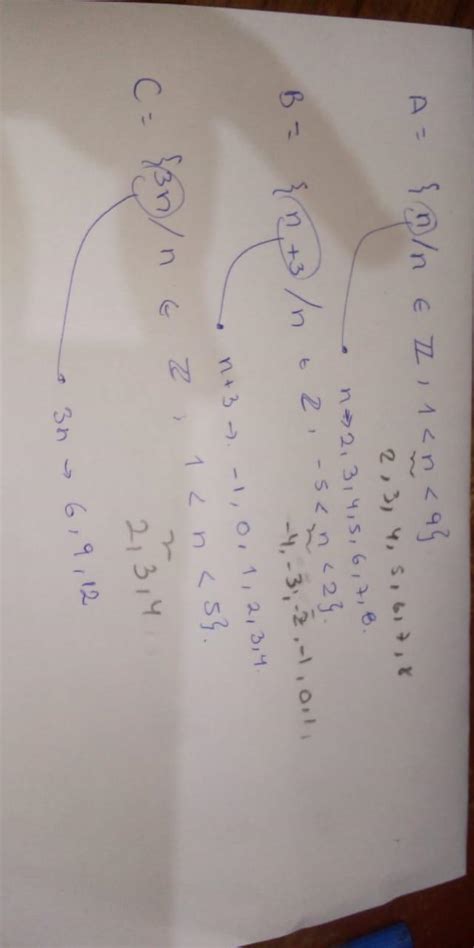 A = {n/n ∈ ℤ, 1 < n < 9}
2, 3, 4, 5, 6, 7, 8
n → 2, 3, 4, 5, 6, 7, 8.
B = {n+3/n ∈ ℤ, -5 < n < 2}.
-4, -3, -2, -1, 0, 1,
n+3 → -1, 0, 1, 2, 3, 4.
C = {3n/n ∈ ℤ, 1 < n < 5}.
2, 3, 4
3n → 6, 9, 12